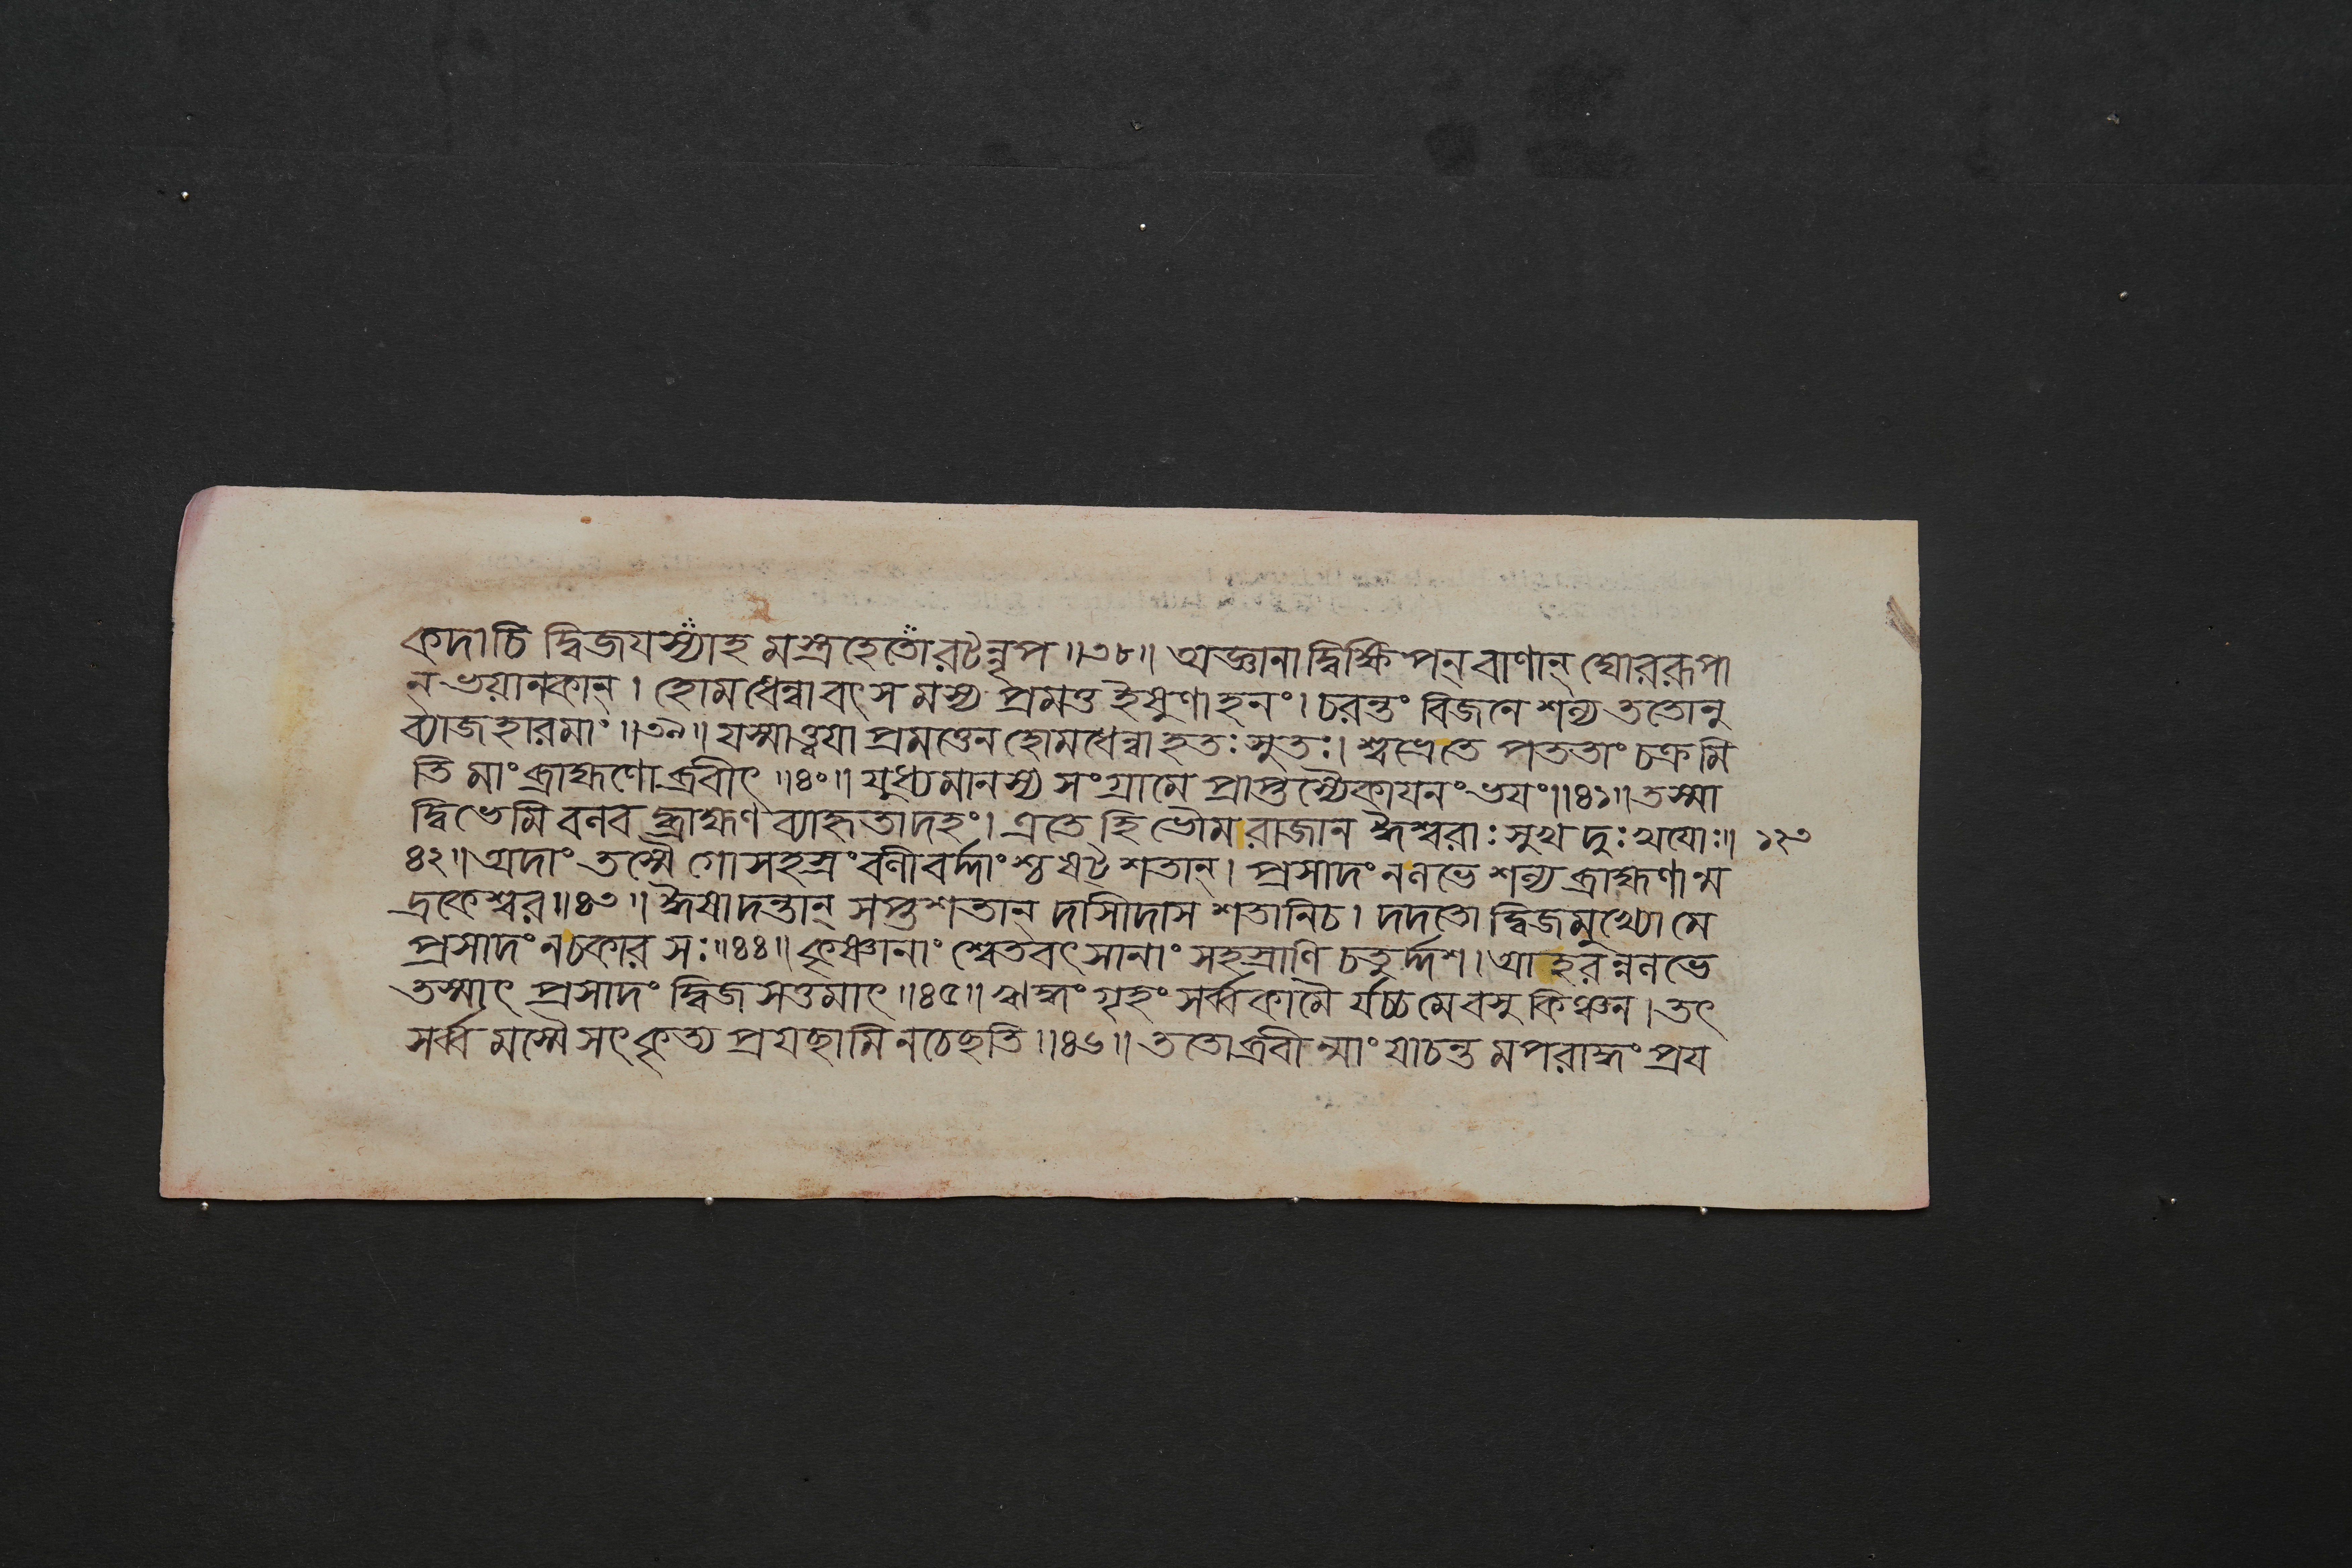 কদাচি দ্বিজযস্যাহ মস্ত্রহেতোরটন্নৃপ ॥৩৮॥ অজ্ঞানাদ্বিক্ষিপন্ বাণান্ ঘোররূপা
ন্ ভয়ানকান্ । হোমধেন্বাবৎস মস্য প্রমত্ত ইষুণাহনং । চরন্তং বিজনে শল্য ততোনু
ব্যাজহারমাং ॥৩৯॥ যস্মাত্ত্বয়া প্রমত্তেন হোমধেন্বা হতঃ সুতঃ । শ্বভ্রেতে পততাং চক্রমি
তি মাং ব্রাহ্মণো ব্রবীৎ ॥৪০॥ যুধ্যমানস্য সংগ্রামে প্রাপ্তস্যৈকাযনং ভযং ॥৪১॥ তস্মা
দ্বিভেমি বলব দ্ব্রাহ্মণ ব্যাহৃতাদহং । এতে হি ভৌম রাজান ঈশ্বরাঃ সুখ দুঃখযোঃ ॥ ১২৩
৪২॥ অদাং তস্মৈ গোসহস্রং বলীবর্দ্দাংশ্চ ষট্ শতান্ । প্রসাদং নলভে শল্য ব্রাহ্মণান্ম
দ্রকেশ্বর ॥৪৩॥ ঈষাদন্তান্ সপ্তশতান্ দাসীদাস শতানিচ । দদতো দ্বিজমুখ্যো মে
প্রসাদং নচকার সঃ ॥৪৪॥ কৃষ্ণানাং শ্বেতবৎসানাং সহস্রাণি চতুর্দ্দশ । আহরন্নলভে
তস্মাৎ প্রসাদং দ্বিজসত্তমাৎ ॥৪৫॥ ঋদ্ধং গৃহং সর্ব্বকামৈ র্যচ্চমে বসু কিঞ্চন । তৎ
সর্ব্ব মস্মৈ সৎকৃত্য প্রযছামি নচেছতি ॥৪৬॥ ততোব্রবী ন্মাং যাচন্ত মপরাদ্ধং প্রয